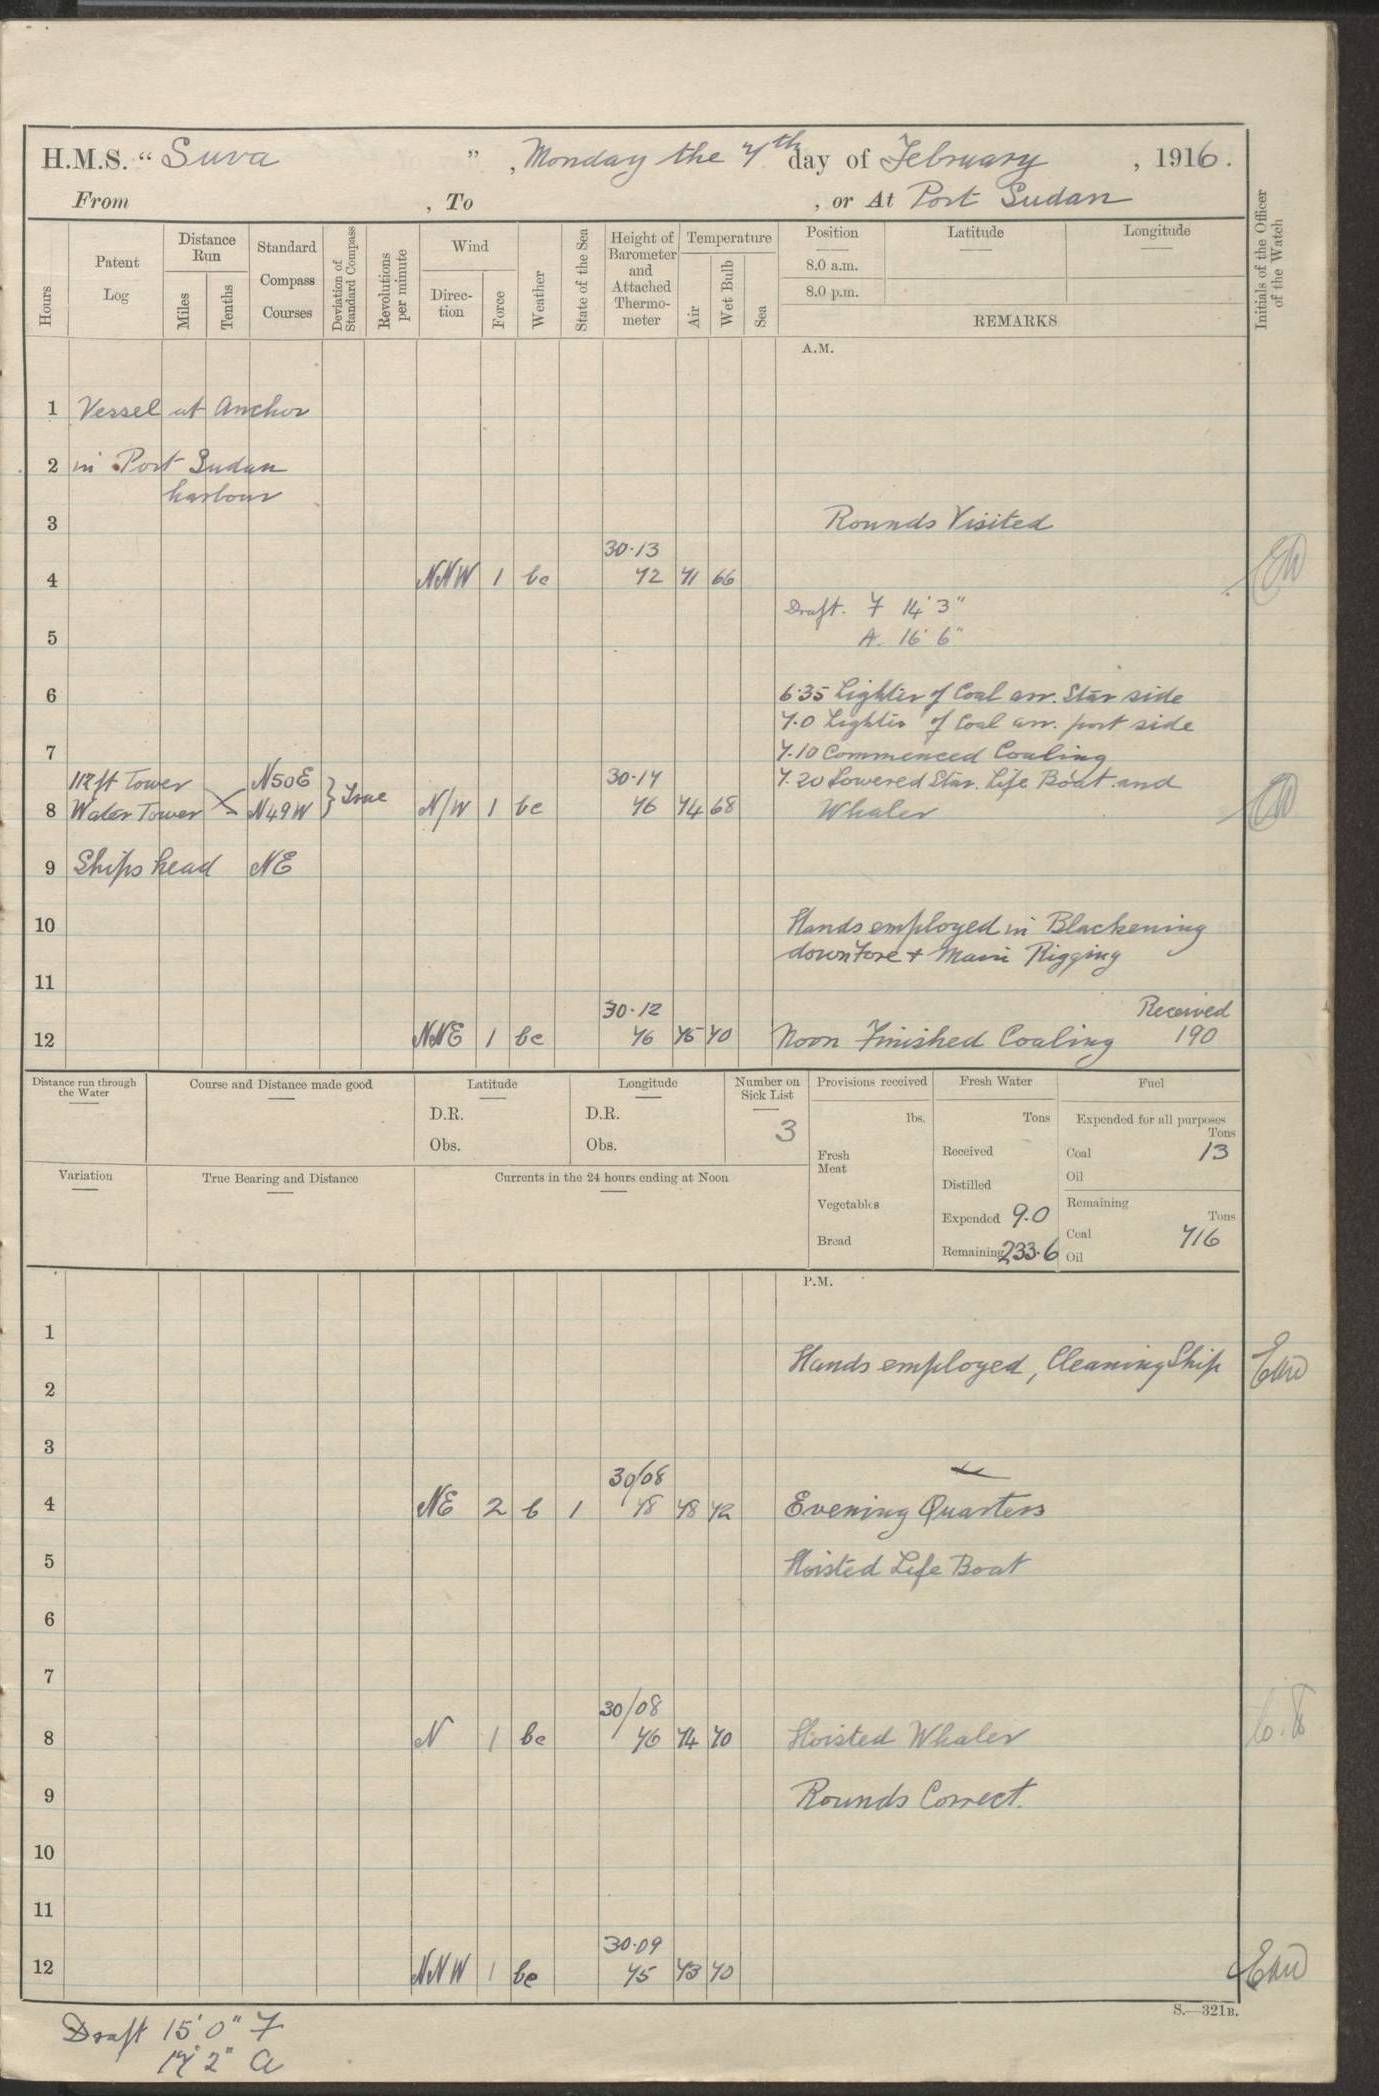 H.M.S. “ Suva ” , Monday the 7th day of February , 1916.
From , To , or At Port Sudan
Hours
Patent Log
Distance Run
Miles
Tenths
Standard Compass Courses
Deviation of Standard Compass
Revolutions per minute
Wind
Direction
Force
Weather
State of the Sea
Height of Barometer and Attached Thermometer
Temperature
Air
Wet Bulb
Sea
Position
8.0 a.m.
8.0 p.m.
Latitude
Longitude
REMARKS
Initials of the Officer of the Watch
A.M.
1 Vessel at Anchor
2 in Port Sudan
harbour
3 Rounds Visited
30·13
4 NNW 1 bc 72 71 66
Draft. F 14' 3"
5 A. 16' 6"
6 6·35 Lighter of Coal arr. Star side
7·0 Lighter of Coal arr. port side
7 7·10 Commenced Coaling
112 ft Tower N50E } True 30·14 7·20 Lowered Star. Life Boat and
8 Water Tower N49W N/W 1 bc 76 74 68 Whaler
9 Ships head NE
10 Hands employed in Blackening
down Fore + Main Rigging
11
30·12 Received
12 NNE 1 bc 76 75 70 Noon Finished Coaling 190
Distance run through the Water
Course and Distance made good
Latitude
D.R.
Obs.
Longitude
D.R.
Obs.
Number on Sick List
3
Provisions received
lbs.
Fresh Meat
Vegetables
Bread
Fresh Water
Tons
Received
Distilled
Expended 9.0
Remaining 233·6
Fuel
Expended for all purposes
Tons
Coal 13
Oil
Remaining
Tons
Coal 716
Oil
Variation
True Bearing and Distance
Currents in the 24 hours ending at Noon
P.M.
1
Hands employed, Cleaning Ship
2
3
30/08
4 NE 2 b 1 78 78 72 Evening Quarters
5 Hoisted Life Boat
6
7
30/08
8 N 1 bc 76 74 70 Hoisted Whaler
9 Rounds Correct.
10
11
30·09
12 NNW 1 bc 75 73 70
S.—321B.
Draft 15' 0" F
17' 2" A